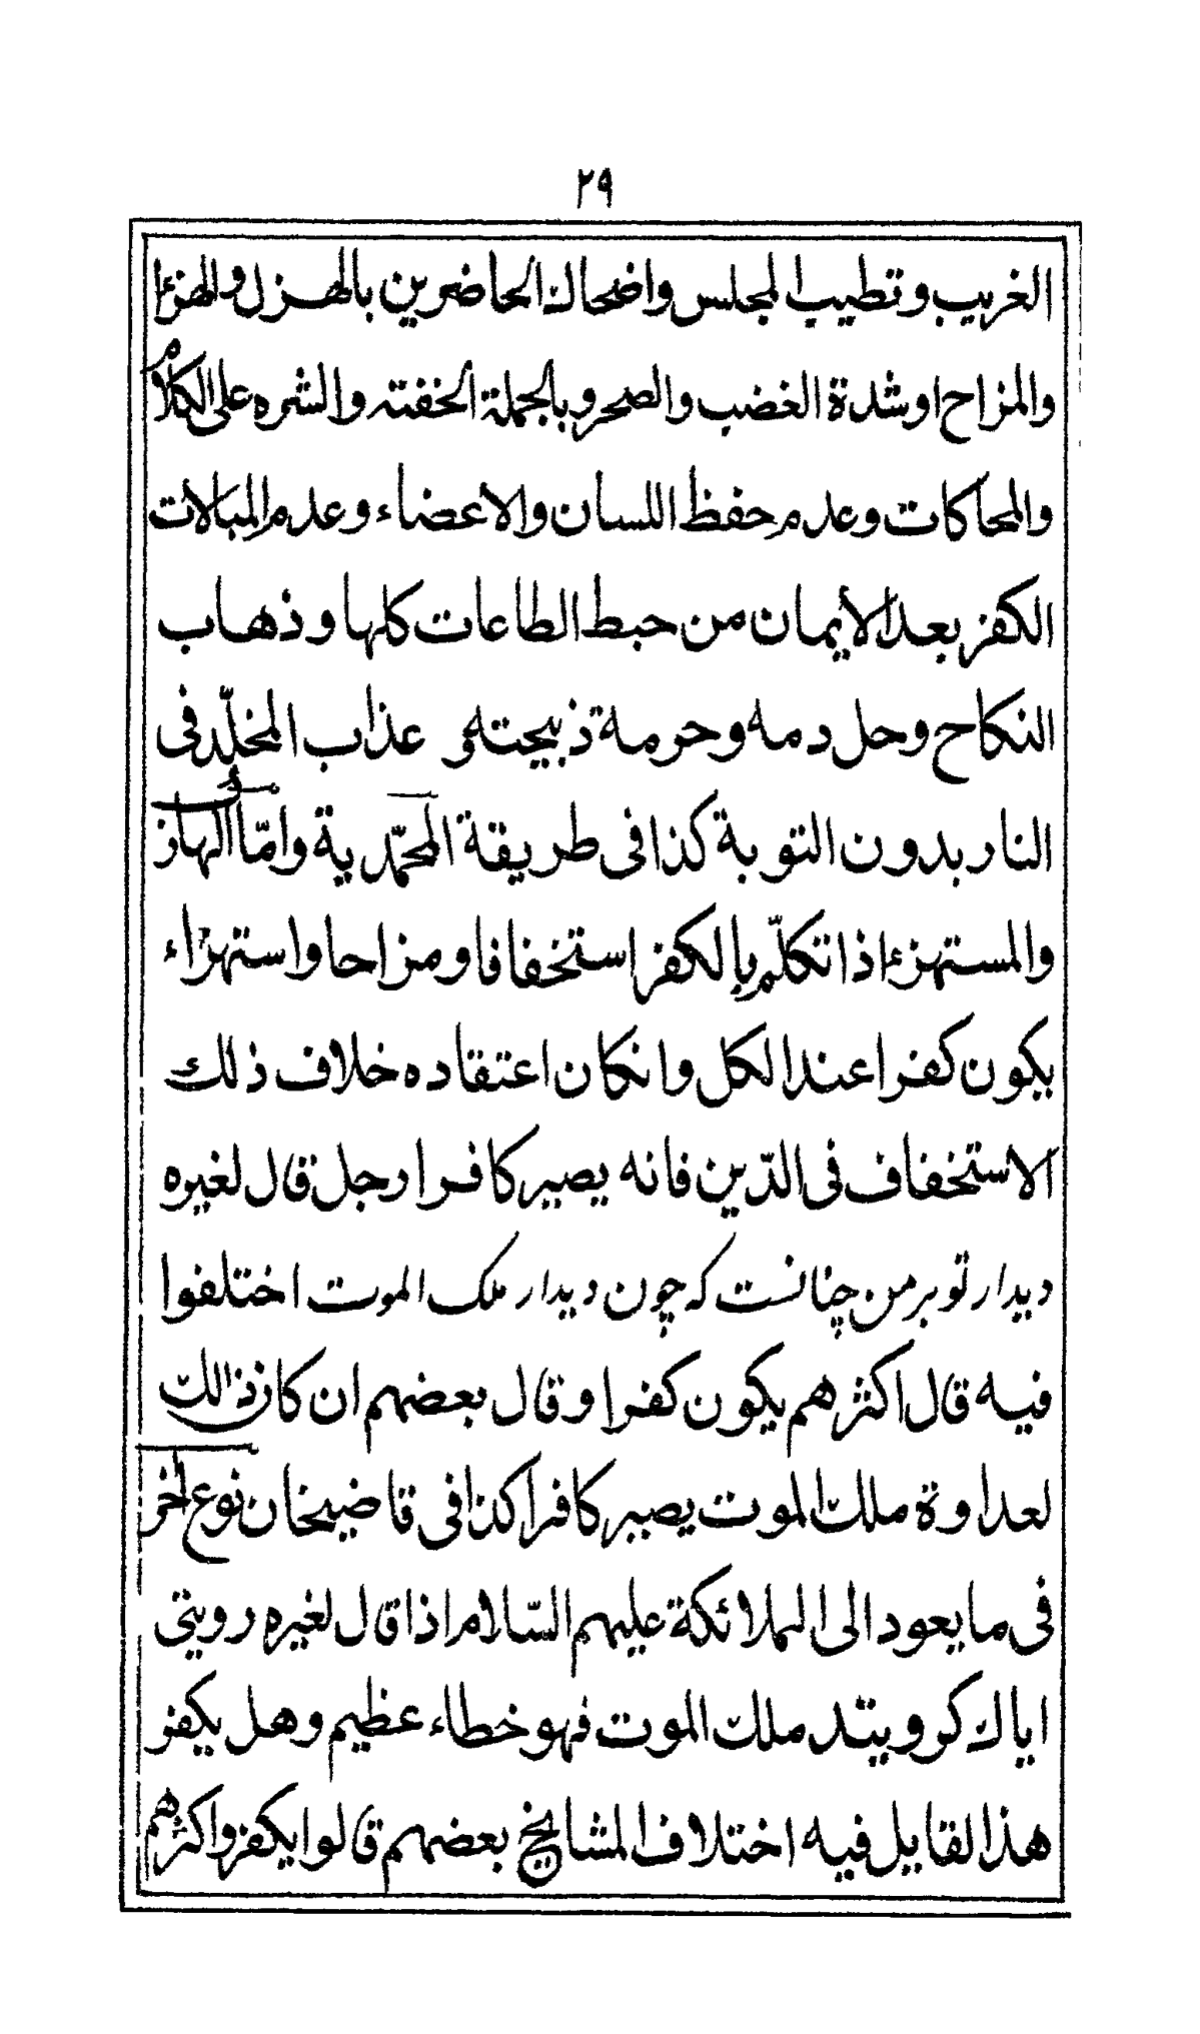 ٢٩
الغريب وتطييب المجلس واضحاك الحاضرين بالهزل والهزءا
والمزاح اوشدة الغضب والصحرو بالجملة الخفتنه والشره على الكلام
والمحاكات وعدم حفظ اللسان والاعضاء وعدم المبالات
الكفر بعد الأيمان من حبط الطاعات كلها وذهاب
النكاح وحل دمه وحرمة ذبيحته و عذاب المخلّد فى
النار بدون التوبة كذا فى طريقة المحمّدية وامّا الهازل
والمستهزءاذا تكلّم بالكفر استخفافا ومزاحا واستهزاء
يكون كفرا عند الكل وانكان اعتقاده خلاف ذلك
الاستخفاف فى الدّين فانه يصير كافرا رجل قال لغيره
ديدار تو بر من چنانست كه چون ديدار ملك الموت اختلفوا
فيه قال اكثرهم يكون كفرا وقال بعضهم ان كان ذالك
لعداوة ملك الموت يصير كافرا كذا فى قاضيخان نوع اخر
فى ما يعود الى الملائكة عليهم السّلام اذا قال لغيره رويتى
اياك كرويتد ملك الموت فهو خطاء عظيم وهل يكفر
هذا القايل فيه اختلاف المشايخ بعضهم قالوا يكفر واكثرهم